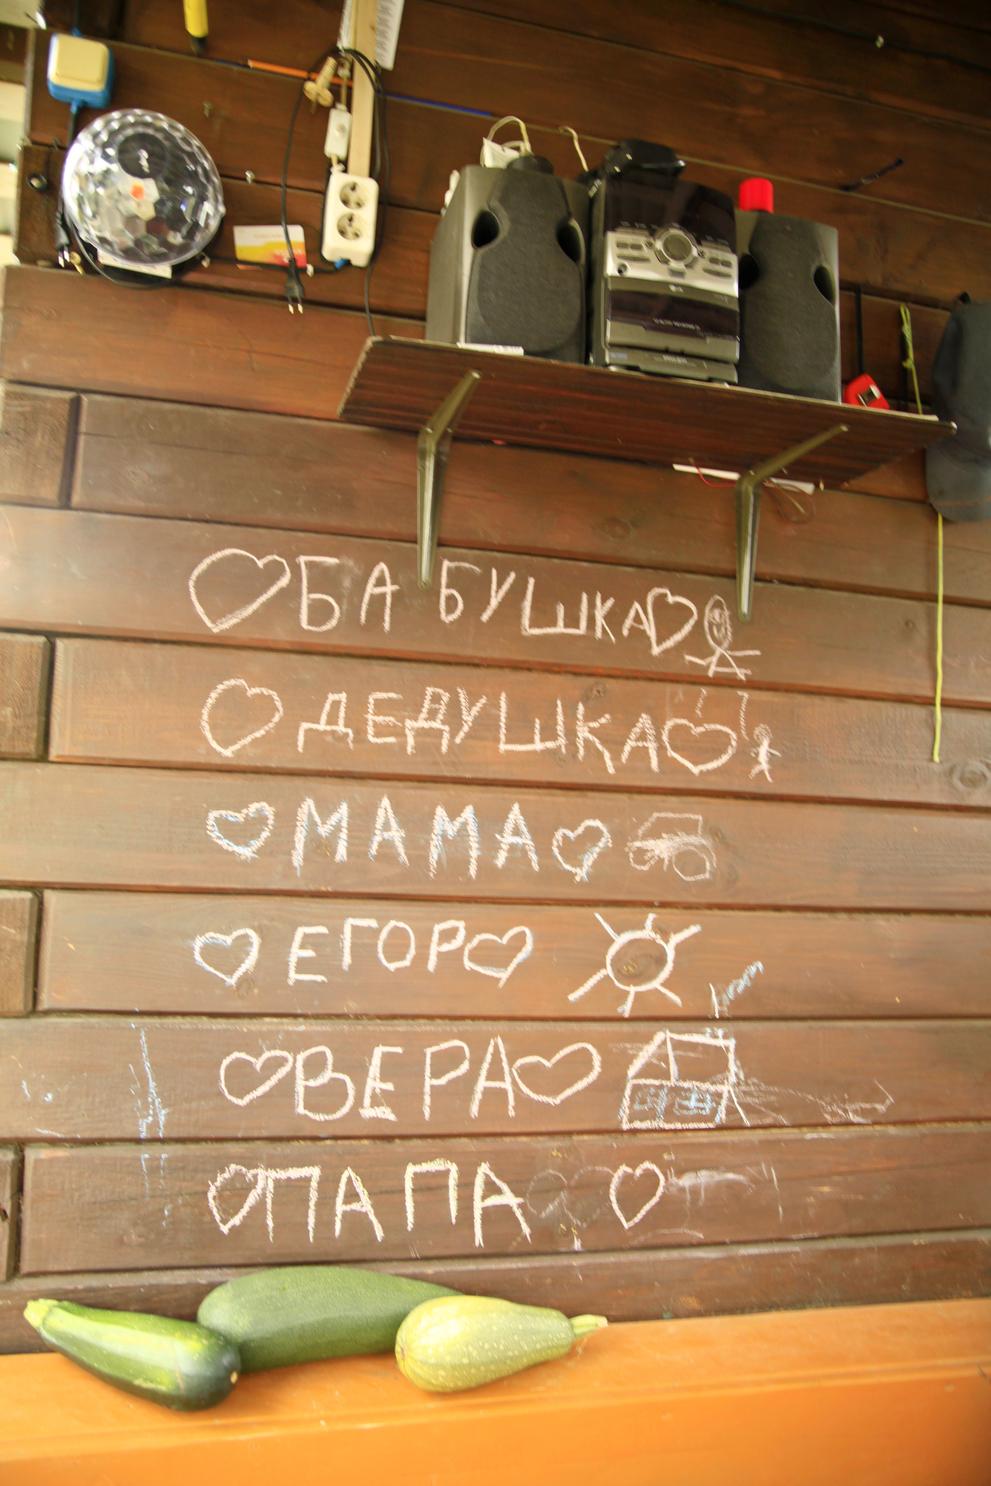 БАБУШКА
ДЕДУШКА
МАМА
ЕГОР
ВЕРА
ПАПА